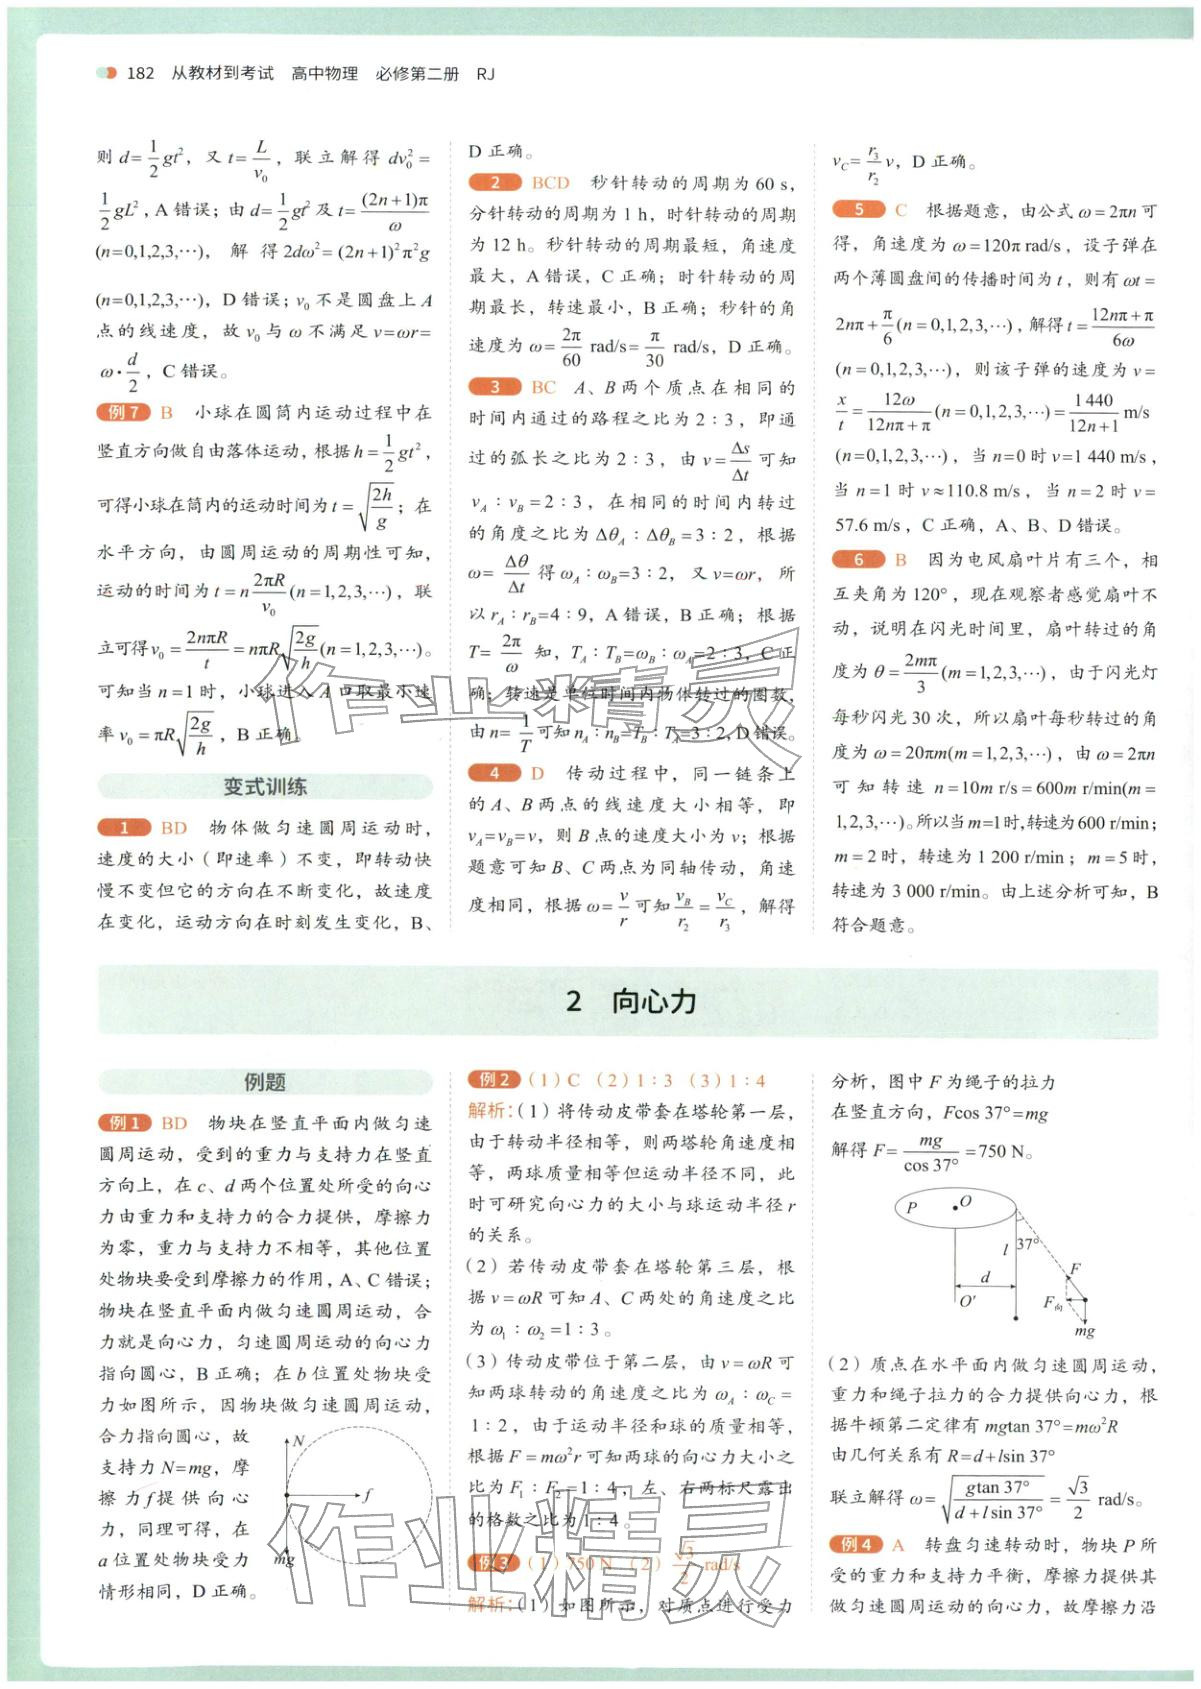 182 从教材到考试 高中物理 必修第二册 RJ
则 d=1/2 gt²，又 t=L/v₀，联立解得 dv₀²=
1/2 gL²，A 错误；由 d=1/2 gt² 及 t=(2n+1)π/ω
(n=0,1,2,3,⋯)，解得 2dω²=(2n+1)²π²g
(n=0,1,2,3,⋯)，D 错误；v₀ 不是圆盘上 A
点的线速度，故 v₀ 与 ω 不满足 v=ωr=
ω·d/2，C 错误。
例 7 B 小球在圆筒内运动过程中在
竖直方向做自由落体运动，根据 h=1/2 gt²，
可得小球在筒内的运动时间为 t=√(2h/g)；在
水平方向，由圆周运动的周期性可知，
运动的时间为 t=n 2πR/v₀ (n=1,2,3,⋯)，联
立可得 v₀=2nπR/t=nπR√(2g/h) (n=1,2,3,⋯)。
可知当 n=1 时，小球进入 A 口取最小速
率 v₀=πR√(2g/h)，B 正确。
变式训练
1 BD 物体做匀速圆周运动时，
速度的大小（即速率）不变，即转动快
慢不变但它的方向在不断变化，故速度
在变化，运动方向在时刻发生变化，B、
D 正确。
2 BCD 秒针转动的周期为 60 s，
分针转动的周期为 1 h，时针转动的周期
为 12 h。秒针转动的周期最短，角速度
最大，A 错误，C 正确；时针转动的周
期最长，转速最小，B 正确；秒针的角
速度为 ω=2π/60 rad/s=π/30 rad/s，D 正确。
3 BC A、B 两个质点在相同的
时间内通过的路程之比为 2∶3，即通
过的弧长之比为 2∶3，由 v=Δs/Δt 可知
v_A∶v_B=2∶3，在相同的时间内转过
的角度之比为 Δθ_A∶Δθ_B=3∶2，根据
ω=Δθ/Δt 得 ω_A∶ω_B=3∶2，又 v=ωr，所
以 r_A∶r_B=4∶9，A 错误，B 正确；根据
T=2π/ω 知，T_A∶T_B=ω_B∶ω_A=2∶3，C 正
确；转速是单位时间内物体转过的圈数，
由 n=1/T 可知 n_A∶n_B=T_B∶T_A=3∶2，D 错误。
4 D 传动过程中，同一链条上
的 A、B 两点的线速度大小相等，即
v_A=v_B=v，则 B 点的速度大小为 v；根据
题意可知 B、C 两点为同轴传动，角速
度相同，根据 ω=v/r 可知 v_B/r₂=v_C/r₃，解得
v_C=r₃/r₂ v，D 正确。
5 C 根据题意，由公式 ω=2πn 可
得，角速度为 ω=120π rad/s，设子弹在
两个薄圆盘间的传播时间为 t，则有 ωt=
2nπ+π/6 (n=0,1,2,3,⋯)，解得 t=(12nπ+π)/6ω
(n=0,1,2,3,⋯)，则该子弹的速度为 v=
x/t=12ω/(12nπ+π) (n=0,1,2,3,⋯)=1 440/(12n+1) m/s
(n=0,1,2,3,⋯)，当 n=0 时 v=1 440 m/s，
当 n=1 时 v≈110.8 m/s，当 n=2 时 v=
57.6 m/s，C 正确，A、B、D 错误。
6 B 因为电风扇叶片有三个，相
互夹角为 120°，现在观察者感觉扇叶不
动，说明在闪光时间里，扇叶转过的角
度为 θ=2mπ/3 (m=1,2,3,⋯)，由于闪光灯
每秒闪光 30 次，所以扇叶每秒转过的角
度为 ω=20πm(m=1,2,3,⋯)，由 ω=2πn
可知转速 n=10m r/s=600m r/min(m=
1,2,3,⋯)。所以当 m=1 时，转速为 600 r/min；
m=2 时，转速为 1 200 r/min；m=5 时，
转速为 3 000 r/min。由上述分析可知，B
符合题意。
2 向心力
例题
例 1 BD 物块在竖直平面内做匀速
圆周运动，受到的重力与支持力在竖直
方向上，在 c、d 两个位置处所受的向心
力由重力和支持力的合力提供，摩擦力
为零，重力与支持力不相等，其他位置
处物块要受到摩擦力的作用，A、C 错误；
物块在竖直平面内做匀速圆周运动，合
力就是向心力，匀速圆周运动的向心力
指向圆心，B 正确；在 b 位置处物块受
力如图所示，因物块做匀速圆周运动，
合力指向圆心，故
支持力 N=mg，摩
擦力 f 提供向心
力，同理可得，在
a 位置处物块受力
情形相同，D 正确。
N
f
mg
例 2 (1) C (2) 1∶3 (3) 1∶4
解析：(1) 将传动皮带套在塔轮第一层，
由于转动半径相等，则两塔轮角速度相
等，两球质量相等但运动半径不同，此
时可研究向心力的大小与球运动半径 r
的关系。
(2) 若传动皮带套在塔轮第三层，根
据 v=ωR 可知 A、C 两处的角速度之比
为 ω₁∶ω₂=1∶3。
(3) 传动皮带位于第二层，由 v=ωR 可
知两球转动的角速度之比为 ω_A∶ω_C=
1∶2，由于运动半径和球的质量相等，
根据 F=mω²r 可知两球的向心力大小之
比为 F₁∶F₂=1∶4，左、右两标尺露出
的格数之比为 1∶4。
例 3 (1) 750 N (2) √3/2 rad/s
解析：(1) 如图所示，对质点进行受力
分析，图中 F 为绳子的拉力
在竖直方向，Fcos 37°=mg
解得 F=mg/cos 37°=750 N。
P
O
l
37°
d
O′
F
F向
mg
(2) 质点在水平面内做匀速圆周运动，
重力和绳子拉力的合力提供向心力，根
据牛顿第二定律有 mgtan 37°=mω²R
由几何关系有 R=d+lsin 37°
联立解得 ω=√(gtan 37°/(d+lsin 37°))=√3/2 rad/s。
例 4 A 转盘匀速转动时，物块 P 所
受的重力和支持力平衡，摩擦力提供其
做匀速圆周运动的向心力，故摩擦力沿
作业精灵
作业精灵